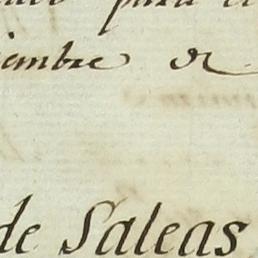 para el
iembre de
de Saleas